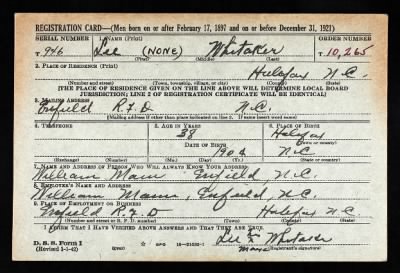 REGISTRATION CARD—(Men born on or after February 17, 1897 and on or before December 31, 1921)
SERIAL NUMBER 1. NAME (Print) ORDER NUMBER
T 946 Lee (NONE) Whitaker T 10,265
(First) (Middle) (Last)
2. PLACE OF RESIDENCE (Print)
Halifax N.C.
(Number and street) (Town, township, village, or city) (County) (State)
[THE PLACE OF RESIDENCE GIVEN ON THE LINE ABOVE WILL DETERMINE LOCAL BOARD
JURISDICTION; LINE 2 OF REGISTRATION CERTIFICATE WILL BE IDENTICAL]
3. MAILING ADDRESS
Enfield R.F.D N.C.
[Mailing address if other than place indicated on line 2. If same insert word same]
4. TELEPHONE 5. AGE IN YEARS 6. PLACE OF BIRTH
38 Halifax
DATE OF BIRTH (Town or county)
N.C.
(Exchange) (Number) (Mo.) (Day) (Yr.) (State or country)
7. NAME AND ADDRESS OF PERSON WHO WILL ALWAYS KNOW YOUR ADDRESS
William Mann Enfield N.C.
8. EMPLOYER'S NAME AND ADDRESS
William Mann, Enfield N.C.
9. PLACE OF EMPLOYMENT OR BUSINESS
Enfield R.F.D Halifax N.C.
(Number and street or R. F. D. number) (Town) (County) (State)
I AFFIRM THAT I HAVE VERIFIED ABOVE ANSWERS AND THAT THEY ARE TRUE.
D. S. S. Form 1 Lee X Whitaker
(Revised 1-1-42) (over) GPO (Registrant's signature)